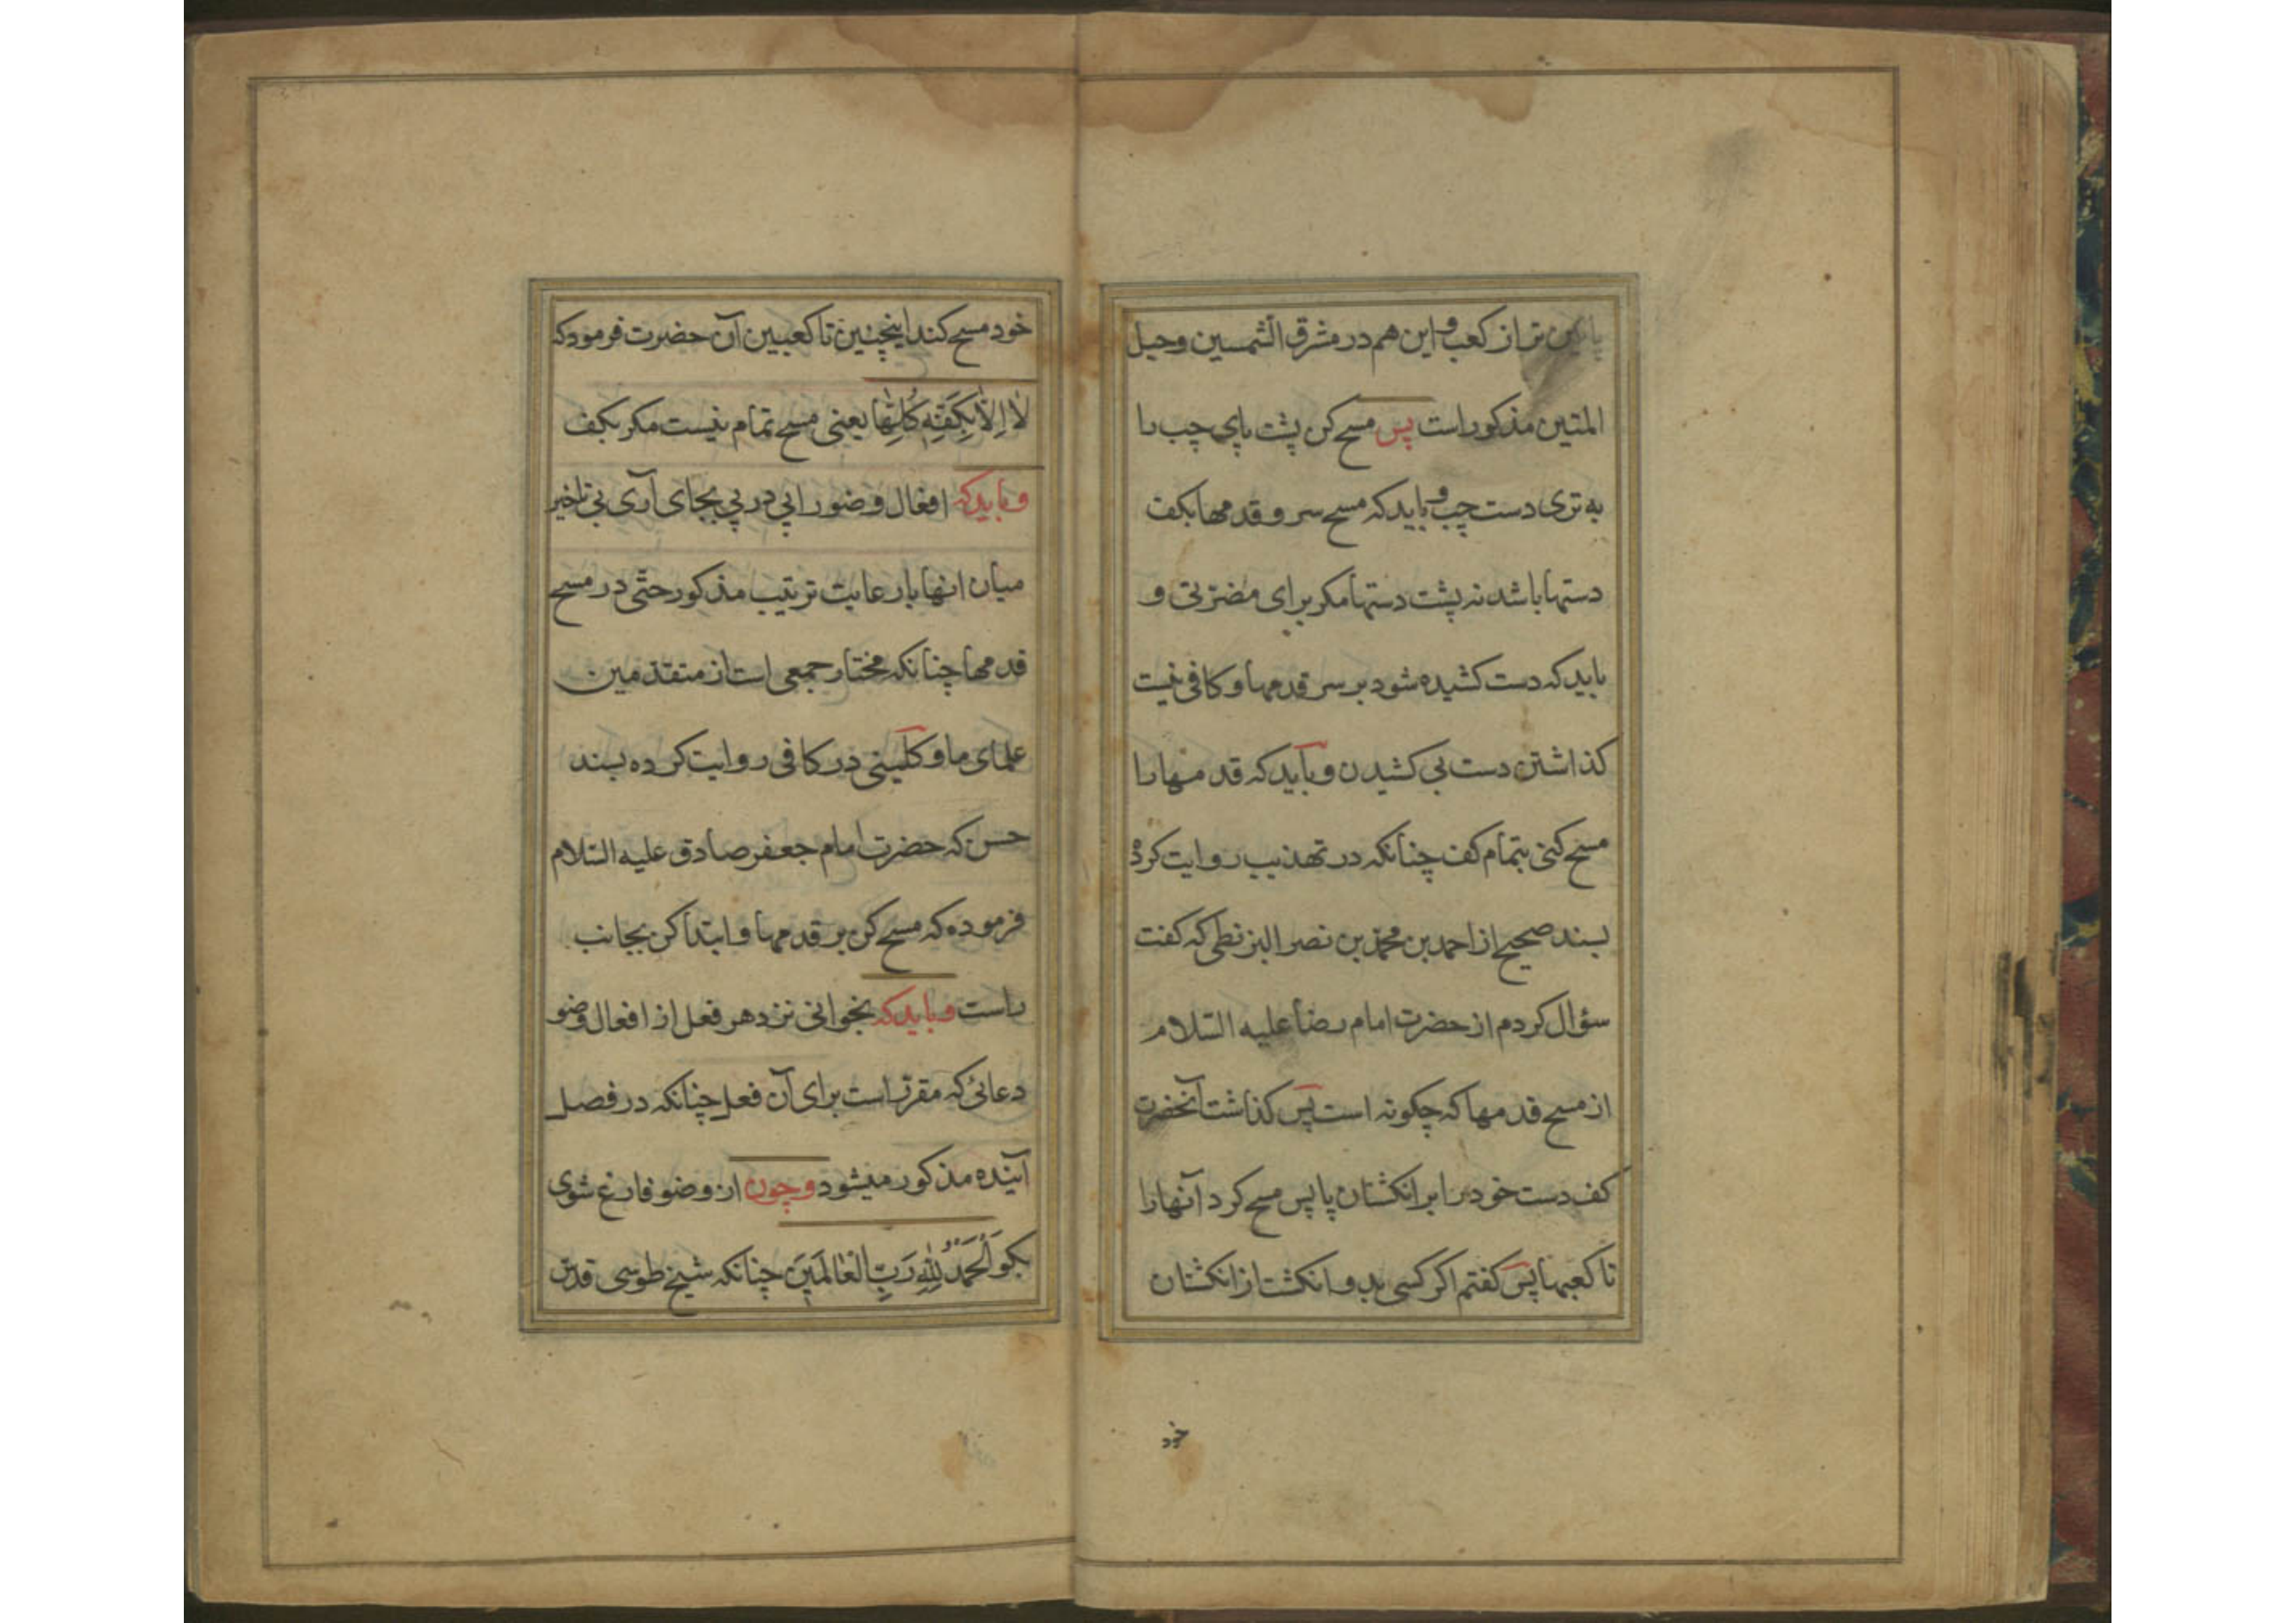 پایین تر از کعب و این هم در مشرق الشمسین و حبل
المتین مذکور است پس مسح کن پشت پای چپ را
به تری دست چپ و باید که مسح سر و قدمها بکف
دستها باشد نه پشت دستها مکر برای مضرتی و
باید که دست کشیده شود بر سر قدمها و کافی نیست
کذاشتن دست بی کشیدن و باید که قدمها را
مسح کنی بتمام کف چنانکه در تهذیب روایت کرده
بسند صحیح از احمد بن محمد بن نصر البزنطی که کفت
سؤال کردم از حضرت امام رضا علیه السّلام
از مسح قدمها که چکونه است پس کذاشت آنحضرت
کف دست خود را بر انکشتان پا پس مسح کرد آنها را
تا کعبها پس کفتم اکر کسی بدو انکشت از انکشتان
خود
خود مسح کند اینچنین تا کعبین آن حضرت فرمود که
لَا اِلَّا بِكَفِّهِ كُلِّهَا یعنی مسح تمام نیست مکر بکف
و باید که افعال وضو را پی در پی بجای آری بی تاخیر
میان انها با رعایت ترتیب مذکور حتّی در مسح
قدمها چنانکه مختار جمعی است از متقدّمین
علمای ما و کلینی در کافی روایت کرده بسند
حسن که حضرت امام جعفر صادق علیه السّلام
فرموده که مسح کن بر قدمها و ابتدا کن بجانب
راست و باید که بخوانی نزد هر فعل از افعال وضو
دعائی که مقرّر است برای آن فعل چنانکه در فصل
آینده مذکور میشود و چون از وضو فارغ شوی
بکو اَلْحَمْدُ لِلّٰهِ رَبِّ الْعَالَمِینَ چنانکه شیخ طوسی قدّس